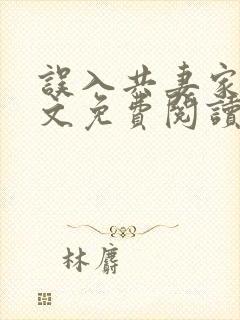 誤入共妻家
文免費閱讀
林麝